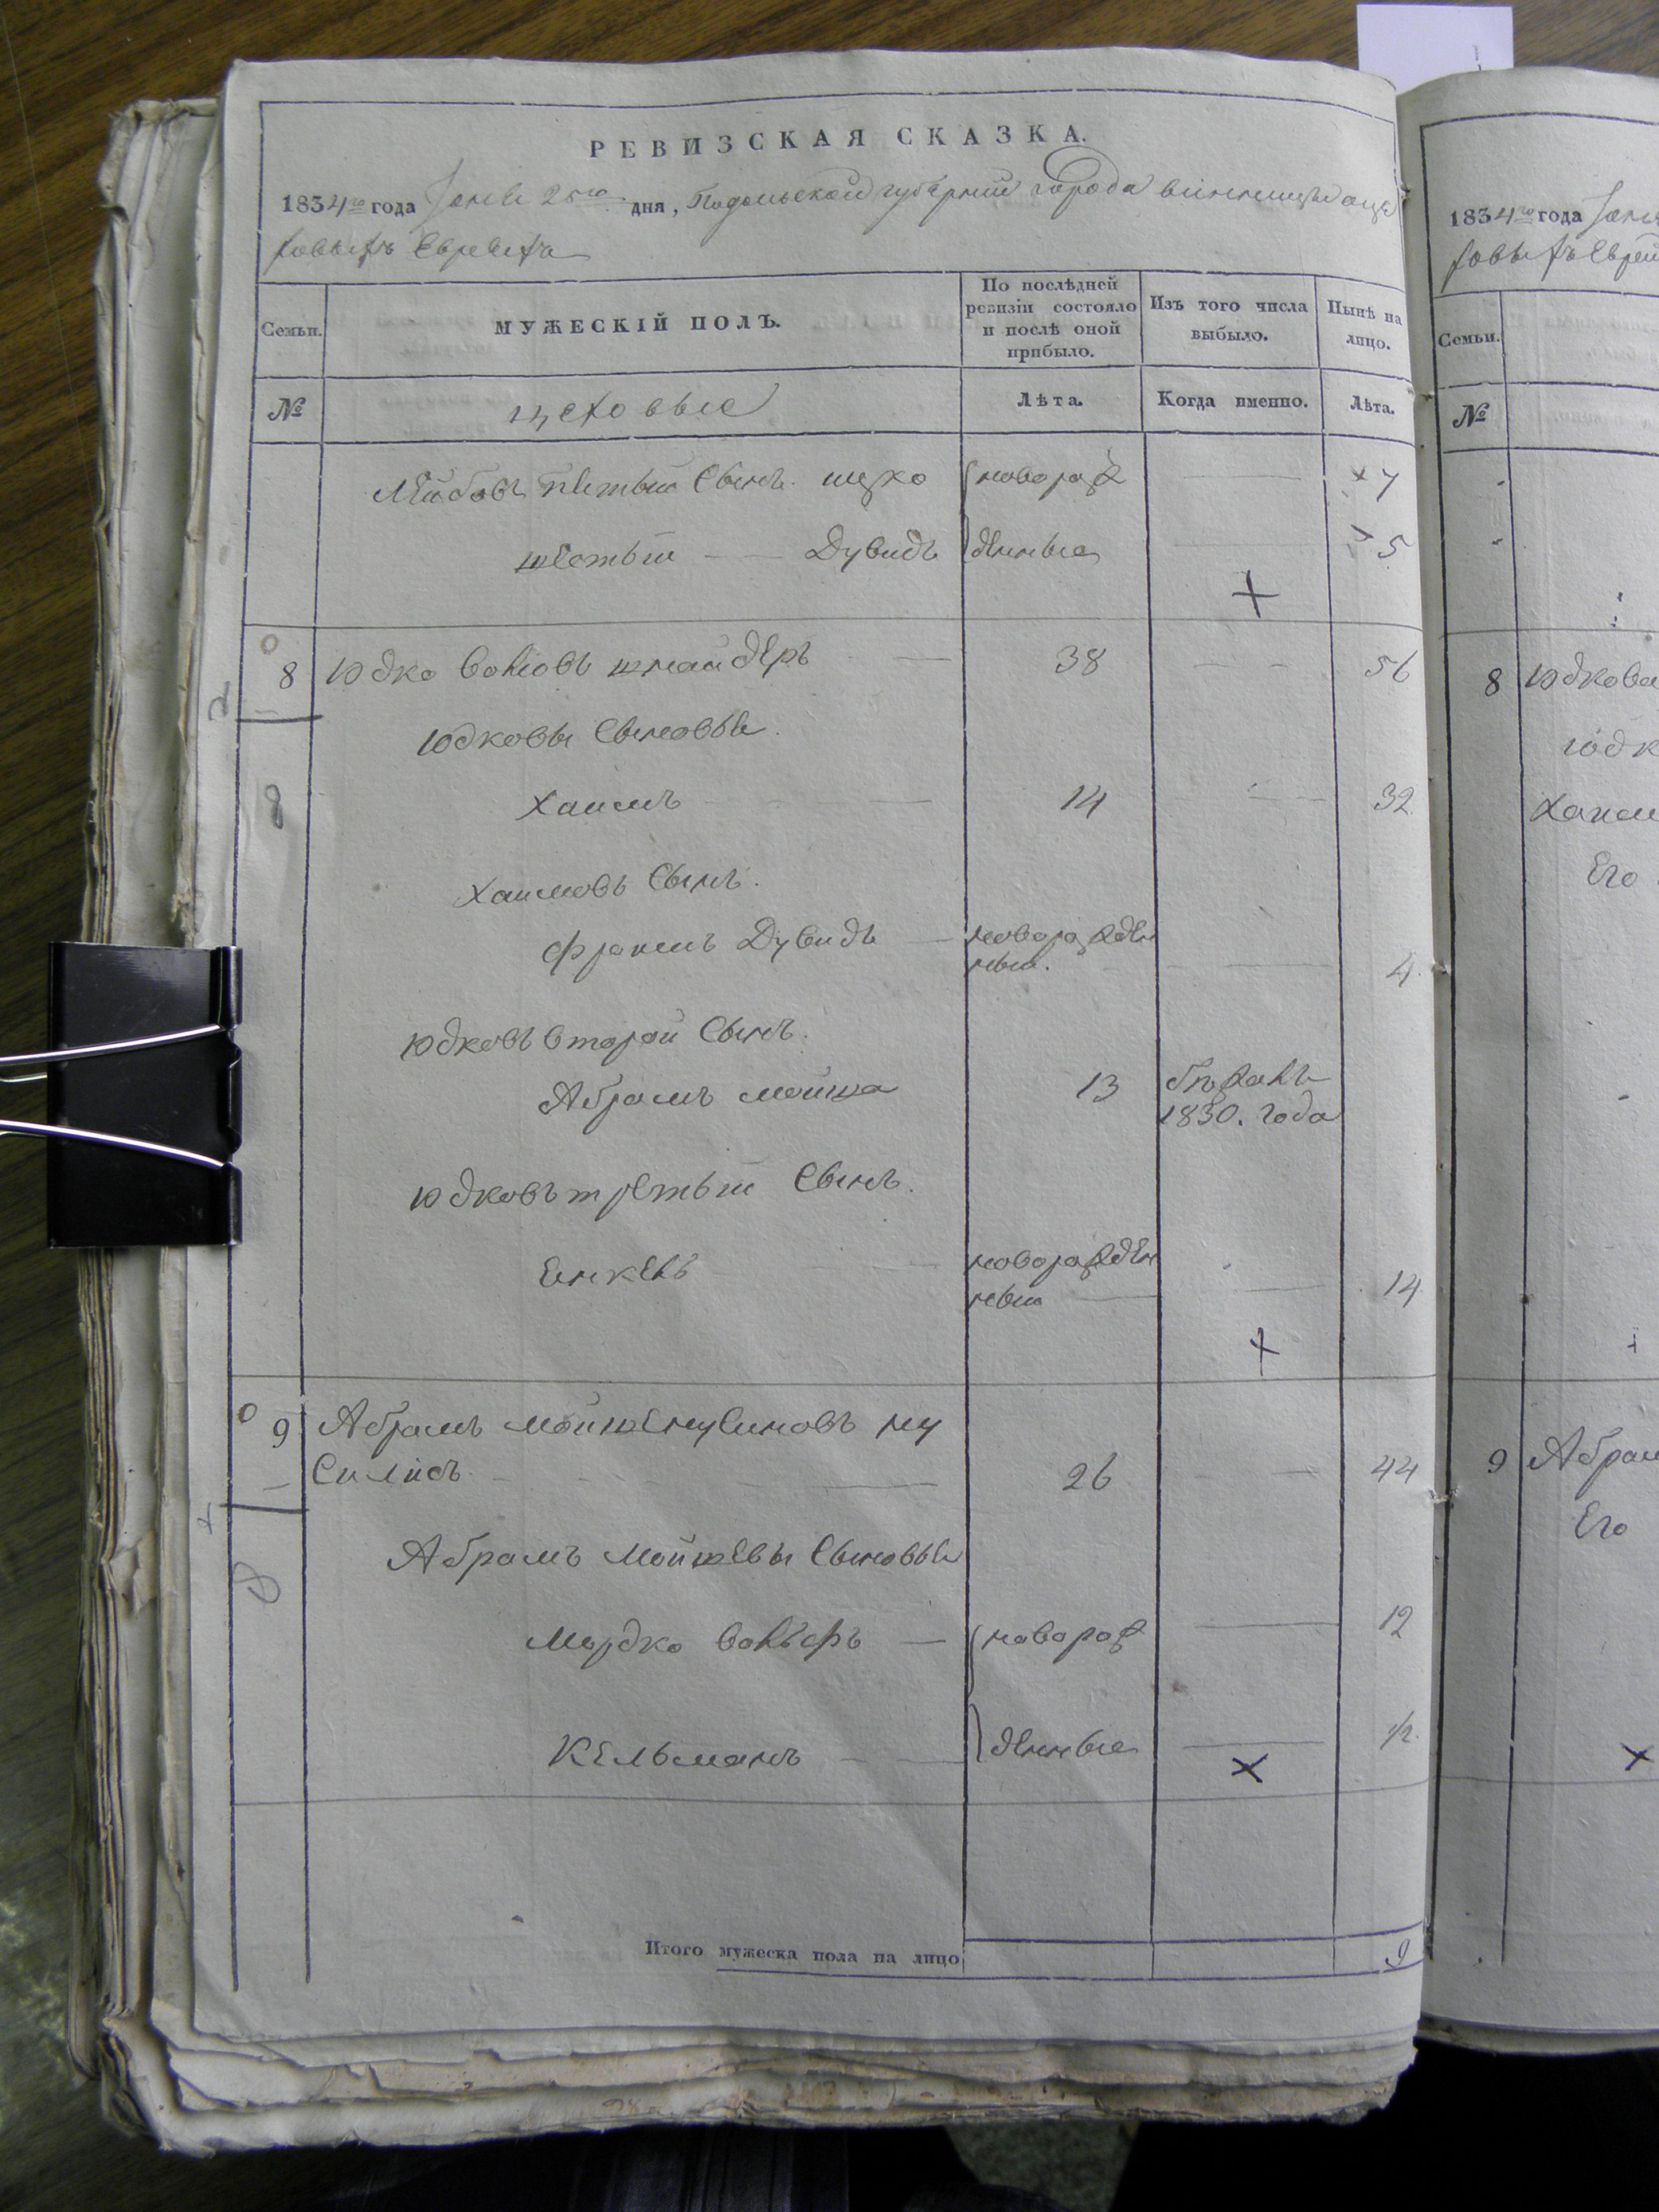 РЕВИЗСКАЯ СКАЗКА.
1834го года Генв 25го дня, Подольской губернiи города винницы оцѣ
ховыхъ Евреевъ
Семьи.
МУЖЕСКІЙ ПОЛЪ.
По послѣдней ревизіи состояло и послѣ оной прибыло.
Изъ того числа выбыло.
Нынѣ на лицо.
№
цеховые
Лѣта.
Когда именно.
Лѣта.
Лейбовъ пятый Сынъ ицко новорож 7
шестый Дувидъ денные 5
8 Юдко Волковъ шнайдеръ 38 56
Юдковы Сыновья
8
Хаимъ 14 32
Хаимовъ Сынъ.
Фроимъ Дувидъ новорожден
ный. 4
Юдковъ второй Сынъ.
Абрамъ мойша 13 бѣжалъ
1830. года
Юдковъ третый Сынъ.
Енкель новорожден
ный 14
9 Абрамъ мойше ну
26 44
Абрамъ Мойшевы Сыновья
Мордко Вольфъ новорож 12
Кельманъ денные 1/2
Итого мужеска пола на лицо 9
1834го года
ховыхъ Еврей
Семьи.
№
8 Юдкова
Юдк
Хаим
Его
9 Абрам
Его